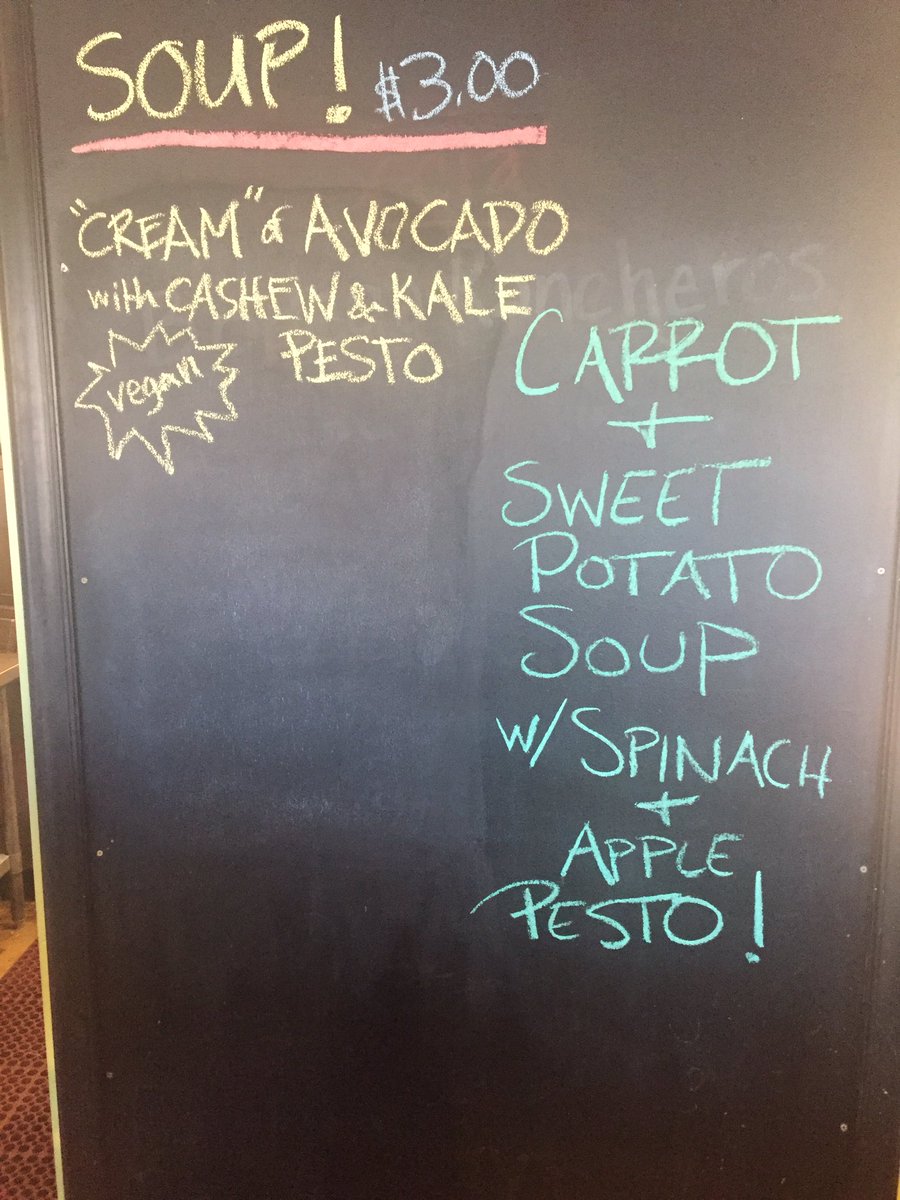 SOUP! $3.00
"CREAM" of AVOCADO
with CASHEW & KALE
PESTO
vegan
CARROT
+
SWEET
POTATO
SOUP
W/ SPINACH
+
APPLE
PESTO!